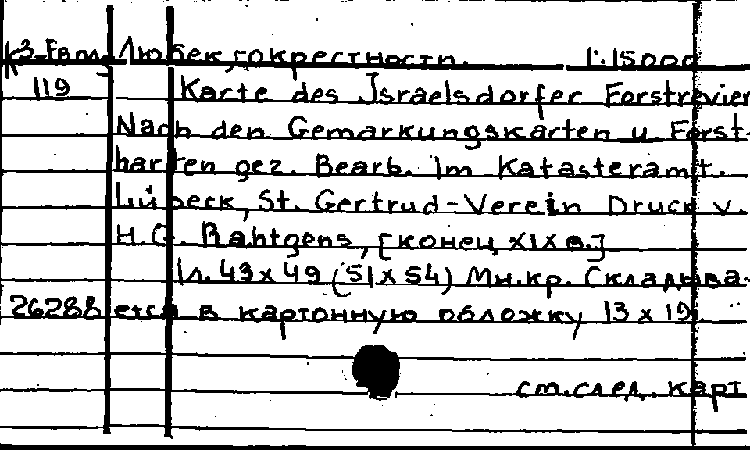 К3-Евр. Любек, окрестности. 1:15000
119 Karte des Israelsdorfer Forstrevier
Nach den Gemarkungskarten u Forst-
karten gez. Bearb. im Katasteramt.
Lübeck, St. Gertrud-Verein Druck v.
H.G. Rahtgens, [конец XIX в.]
1л. 43 x 49 (51 x 54) Мн.кр. Складыва-
26288 ется в картонную обложку 13 x 19.
см.след. карт